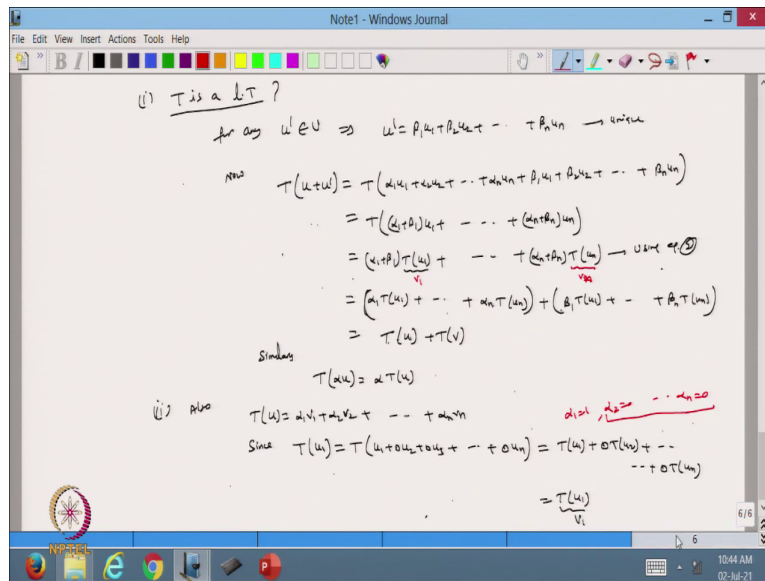 Note1 - Windows Journal
File Edit View Insert Actions Tools Help
(i) T is a L.T ?
for any u' ∈ U ⇒ u' = β₁u₁ + β₂u₂ + ··· + βₙuₙ → unique
Now T(u+u') = T(α₁u₁ + α₂u₂ + ·· + αₙuₙ + β₁u₁ + β₂u₂ + ·· + βₙuₙ)
= T((α₁+β₁)u₁ + - - - + (αₙ+βₙ)uₙ)
= (α₁+β₁)T(u₁) + - ·· + (αₙ+βₙ)T(uₙ) → Using eq. ②
v₁
= (α₁T(u₁) + -·· + αₙT(uₙ)) + (β₁T(u₁) + - + βₙT(uₙ))
= T(u) + T(v)
Similary
T(αu) = αT(u)
(ii) Also T(u) = α₁v₁ + α₂v₂ + - - + αₙvₙ α₁=1, α₂=0 - ·· αₙ=0
Since T(u₁) = T(u₁ + 0u₂ + 0u₃ + ·· + 0uₙ) = T(u₁) + 0T(u₂) + --
--- + 0T(uₙ)
= T(u₁)
v₁
6/6
6
NPTEL
10:44 AM
02-Jul-21